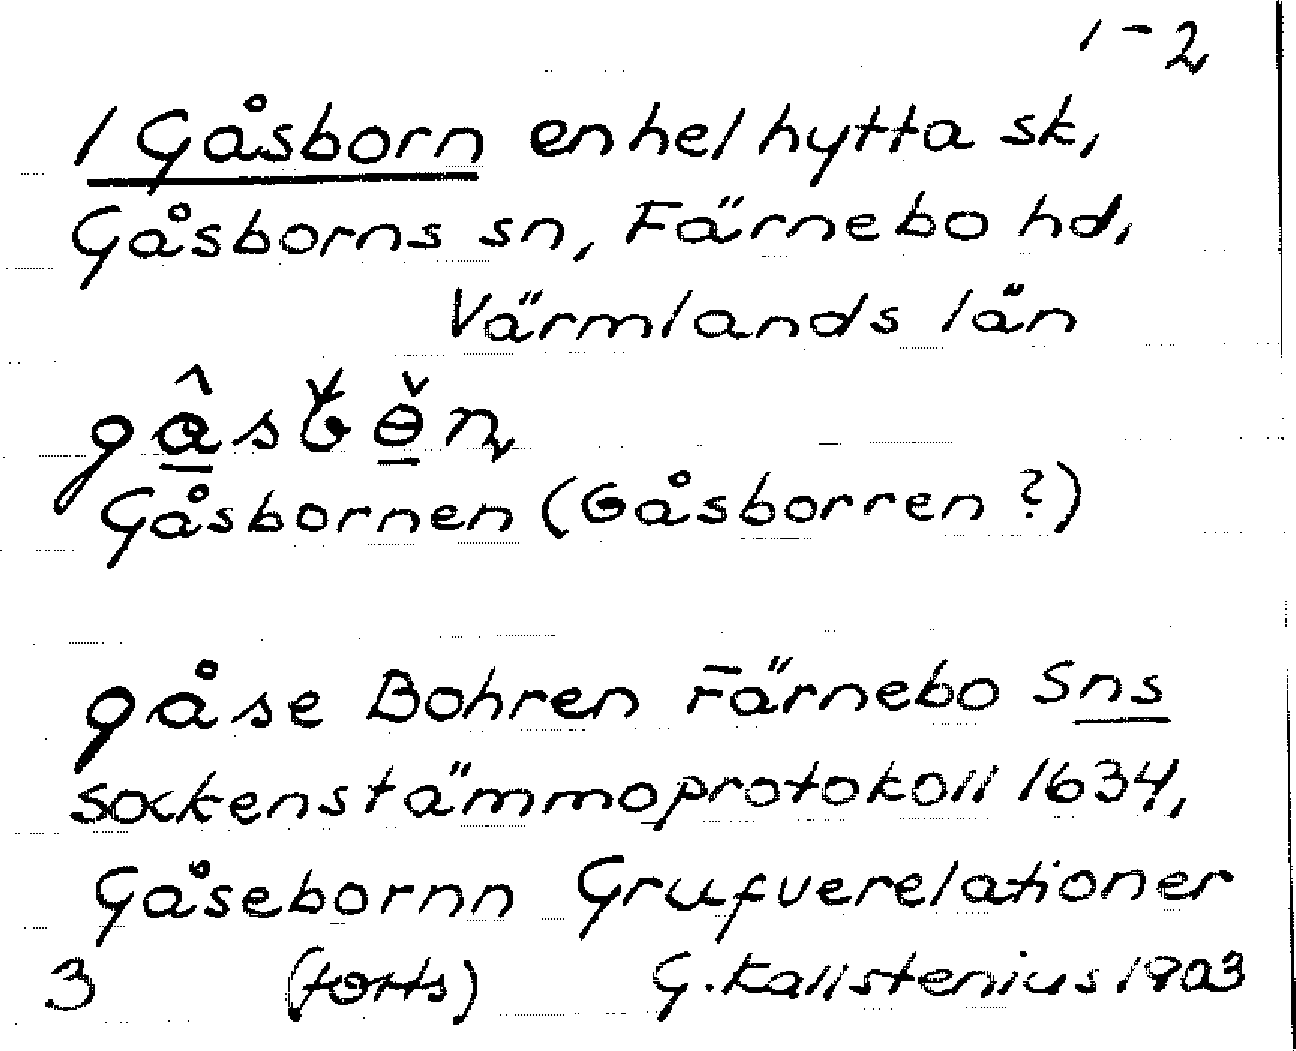 1-2
1 Gåsborn enhel hytta sk,
Gåsborns sn, Färnebo hd,
Värmlands län
Gåsbornen (Gåsborren?)
gåse Bohren Färnebo Sns
sockenstämmoprotokoll 1634,
Gåsebornn Grufverelationer
3 (forts) G. Kallstenius 1903